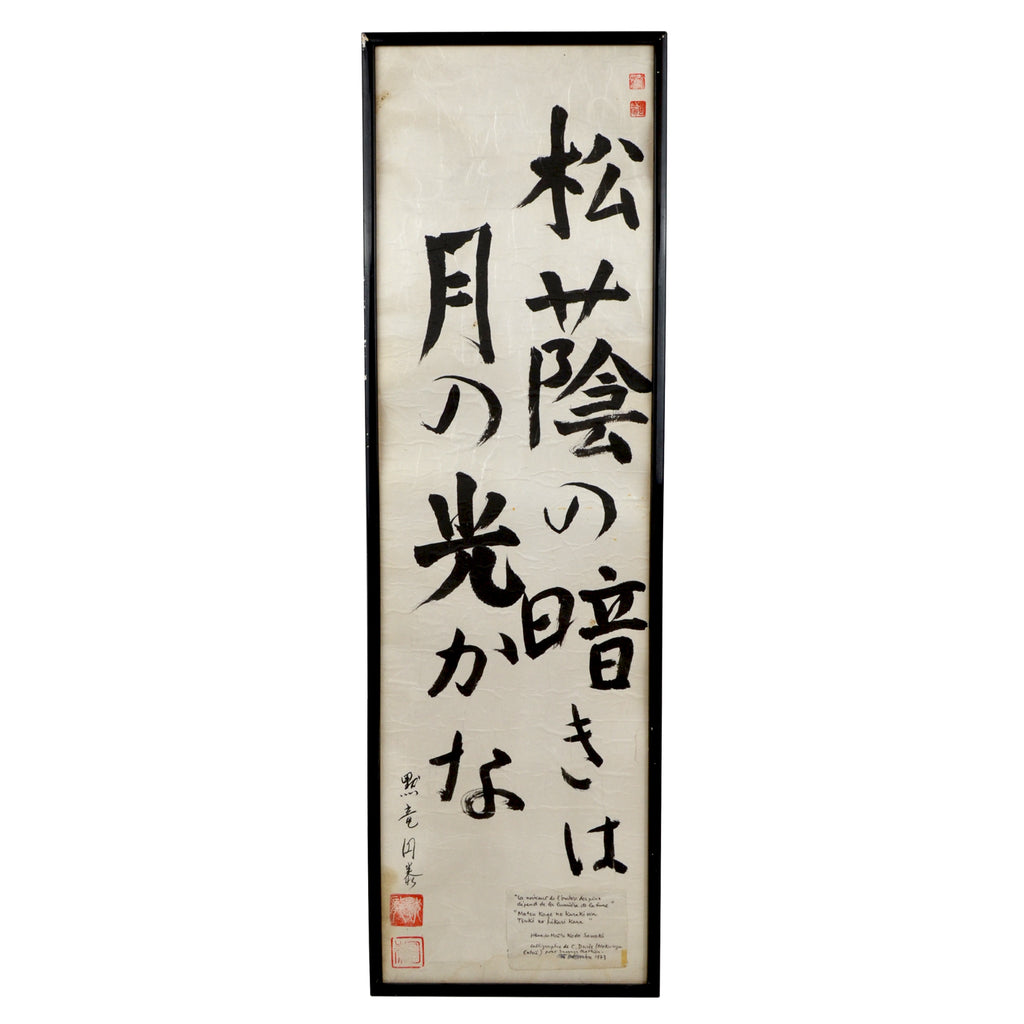 松蔭の暗きは
月の光かな
黙竜円泰
"La noirceur de l'ombre des pins
dépend de la lumière de la lune"
"Matsu Kage no Kuraki wa
Tsuki no hikari Kana"
Maître Kodo Sawaki
Calligraphie de C.
1973